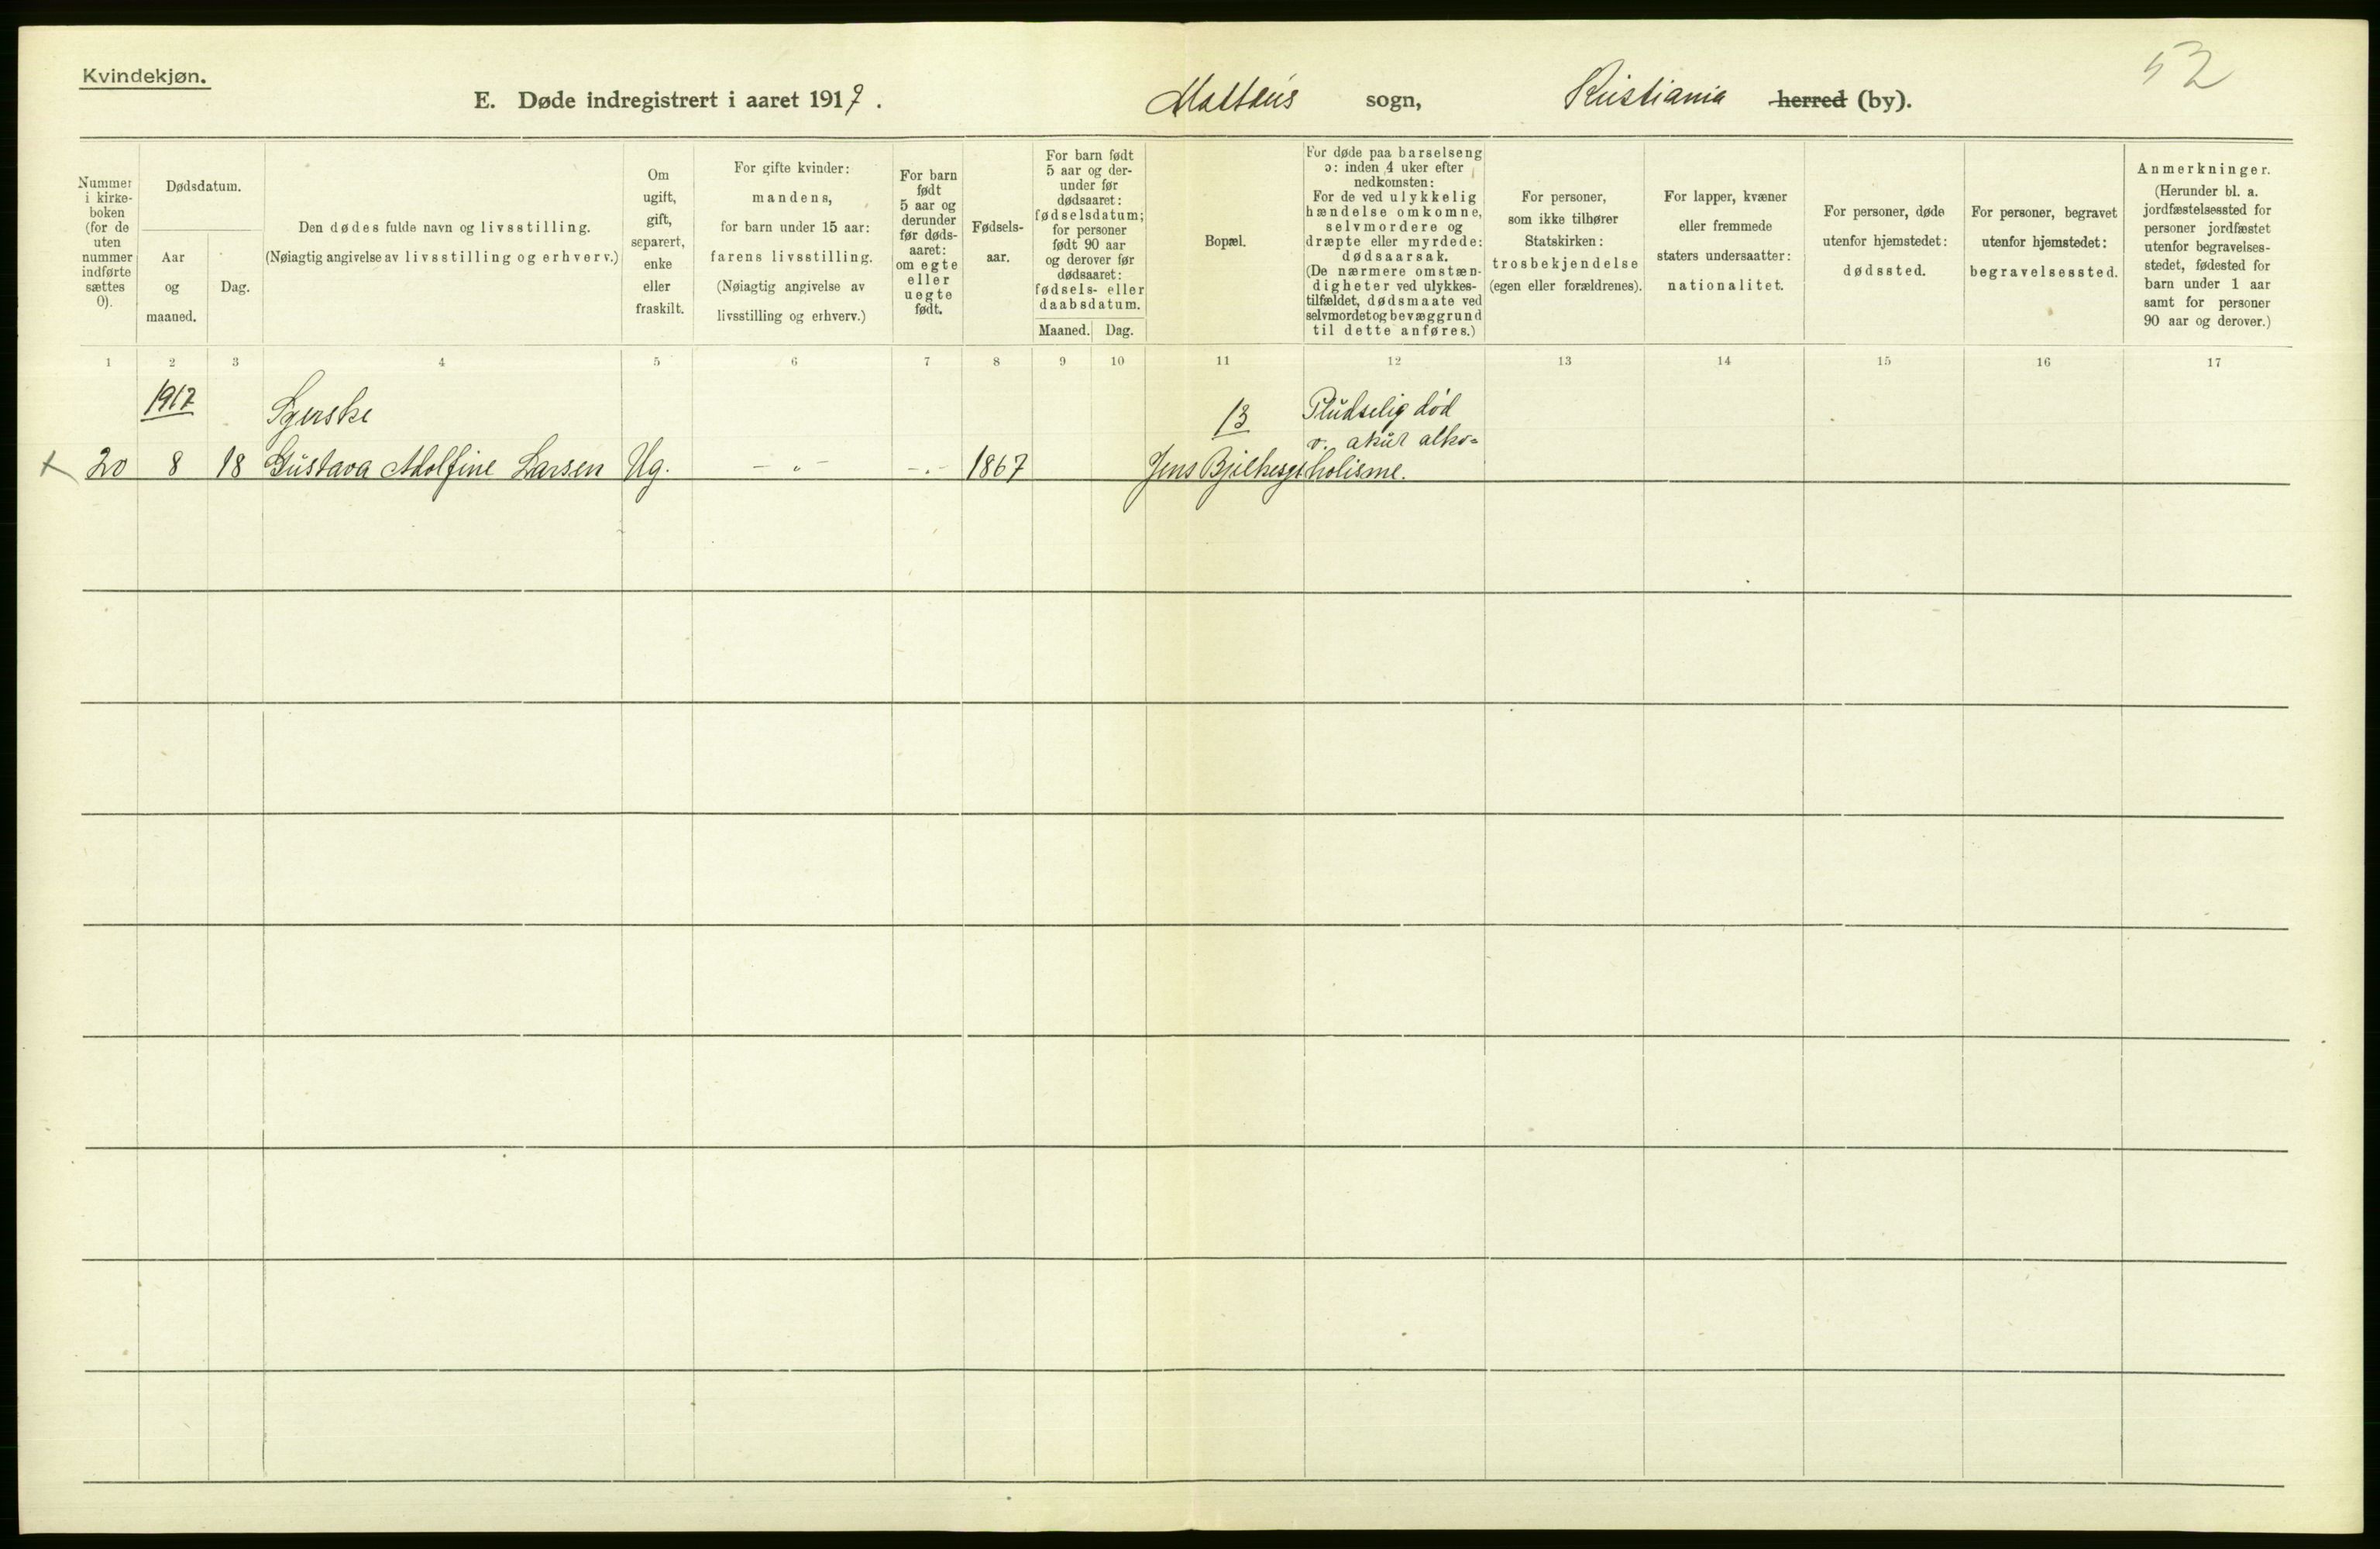 Kvindekjøn.
52
E. Døde indregistrert i aaret 1917.
Mattæus sogn,
Kristiania herred (by).
Nummer
i kirke-
boken
(for de
uten
nummer
indførte
sættes
0).
Dødsdatum.
Aar
og
maaned.
Dag.
Den dødes fulde navn og livsstilling.
(Nøiagtig angivelse av livsstilling og erhverv.)
Om
ugift,
gift,
separert,
enke
eller
fraskilt.
For gifte kvinder:
mandens,
for barn under 15 aar:
farens livsstilling.
(Nøiagtig angivelse av
livsstilling og erhverv.)
For barn
født
5 aar og
derunder
før døds-
aaret:
om egte
eller
uegte
født.
Fødsels-
aar.
For barn født
5 aar og der-
under før
dødsaaret:
fødselsdatum;
for personer
født 90 aar
og derover før
dødsaaret:
fødsels- eller
daabsdatum.
Maaned. Dag.
Bopæl.
For døde paa barselseng
ɔ: inden 4 uker efter
nedkomsten:
For de ved ulykkelig
hændelse omkomne,
selvmordere og
dræpte eller myrdede:
dødsaarsak.
(De nærmere omstæn-
digheter ved ulykkes-
tilfældet, dødsmaate ved
selvmordet og bevæggrund
til dette anføres.)
For personer,
som ikke tilhører
Statskirken:
trosbekjendelse
(egen eller forældrenes).
For lapper, kvæner
eller fremmede
staters undersaatter:
nationalitet.
For personer, døde
utenfor hjemstedet:
dødssted.
For personer, begravet
utenfor hjemstedet:
begravelsessted.
Anmerkninger.
(Herunder bl. a.
jordfæstelsessted for
personer jordfæstet
utenfor begravelses-
stedet, fødested for
barn under 1 aar
samt for personer
90 aar og derover.)
1 2 3 4 5 6 7 8 9 10 11 12 13 14 15 16 17
1917 Syerske 13 Pludselig død
v. akut alko=
20 8 18 Gustava Adolfine Larsen Ug. - " - - . - 1867 Jens Bjelkesgt holisme.